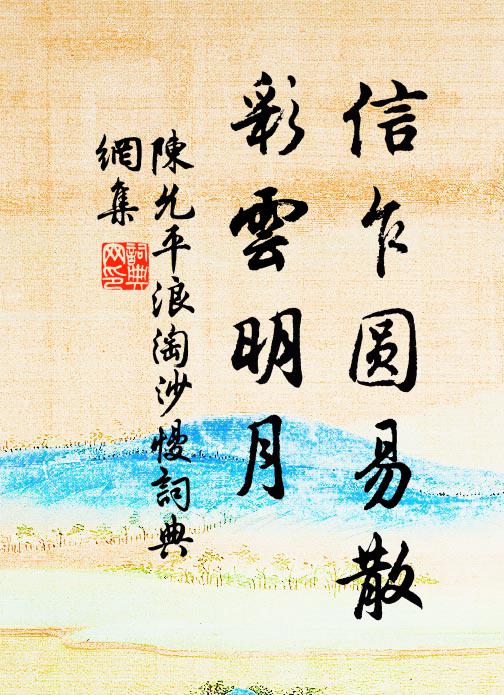 信乍圆易散
彩雲明月
陳允平浪淘沙慢詞典
網集
詞典
网印